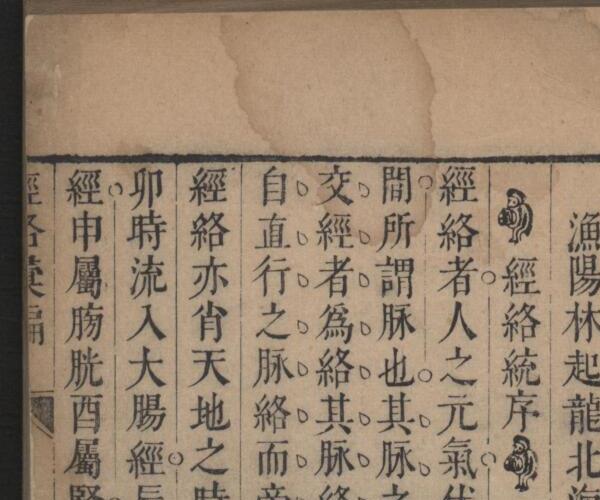 漁陽林起龍北海
經絡統序
經絡者人之元氣
間所謂脉也其脉之
交經者爲絡其脉絡
自直行之脉絡而
經絡亦肖天地之時
卯時流入大腸經
經申屬膀胱酉屬腎
經絡彙編